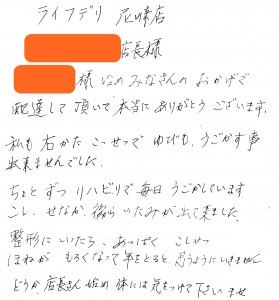 ライフデリ 尼崎店
店長様
様始めみなさんの おかげで
配達して頂いて本当にありがとうございます.
私も右かたこっせつで ゆびも.うごかす事
出来ませんでした.
ちょとずつリハビリで毎日うごかしています
こし、せなか、後らいたみが出て来ました.
整形にいったら、あっぱく こしせつ
ほねが もろくなって年をとると、思うようにいきません
どうか店長さん始め 体には気をつけて下いませ